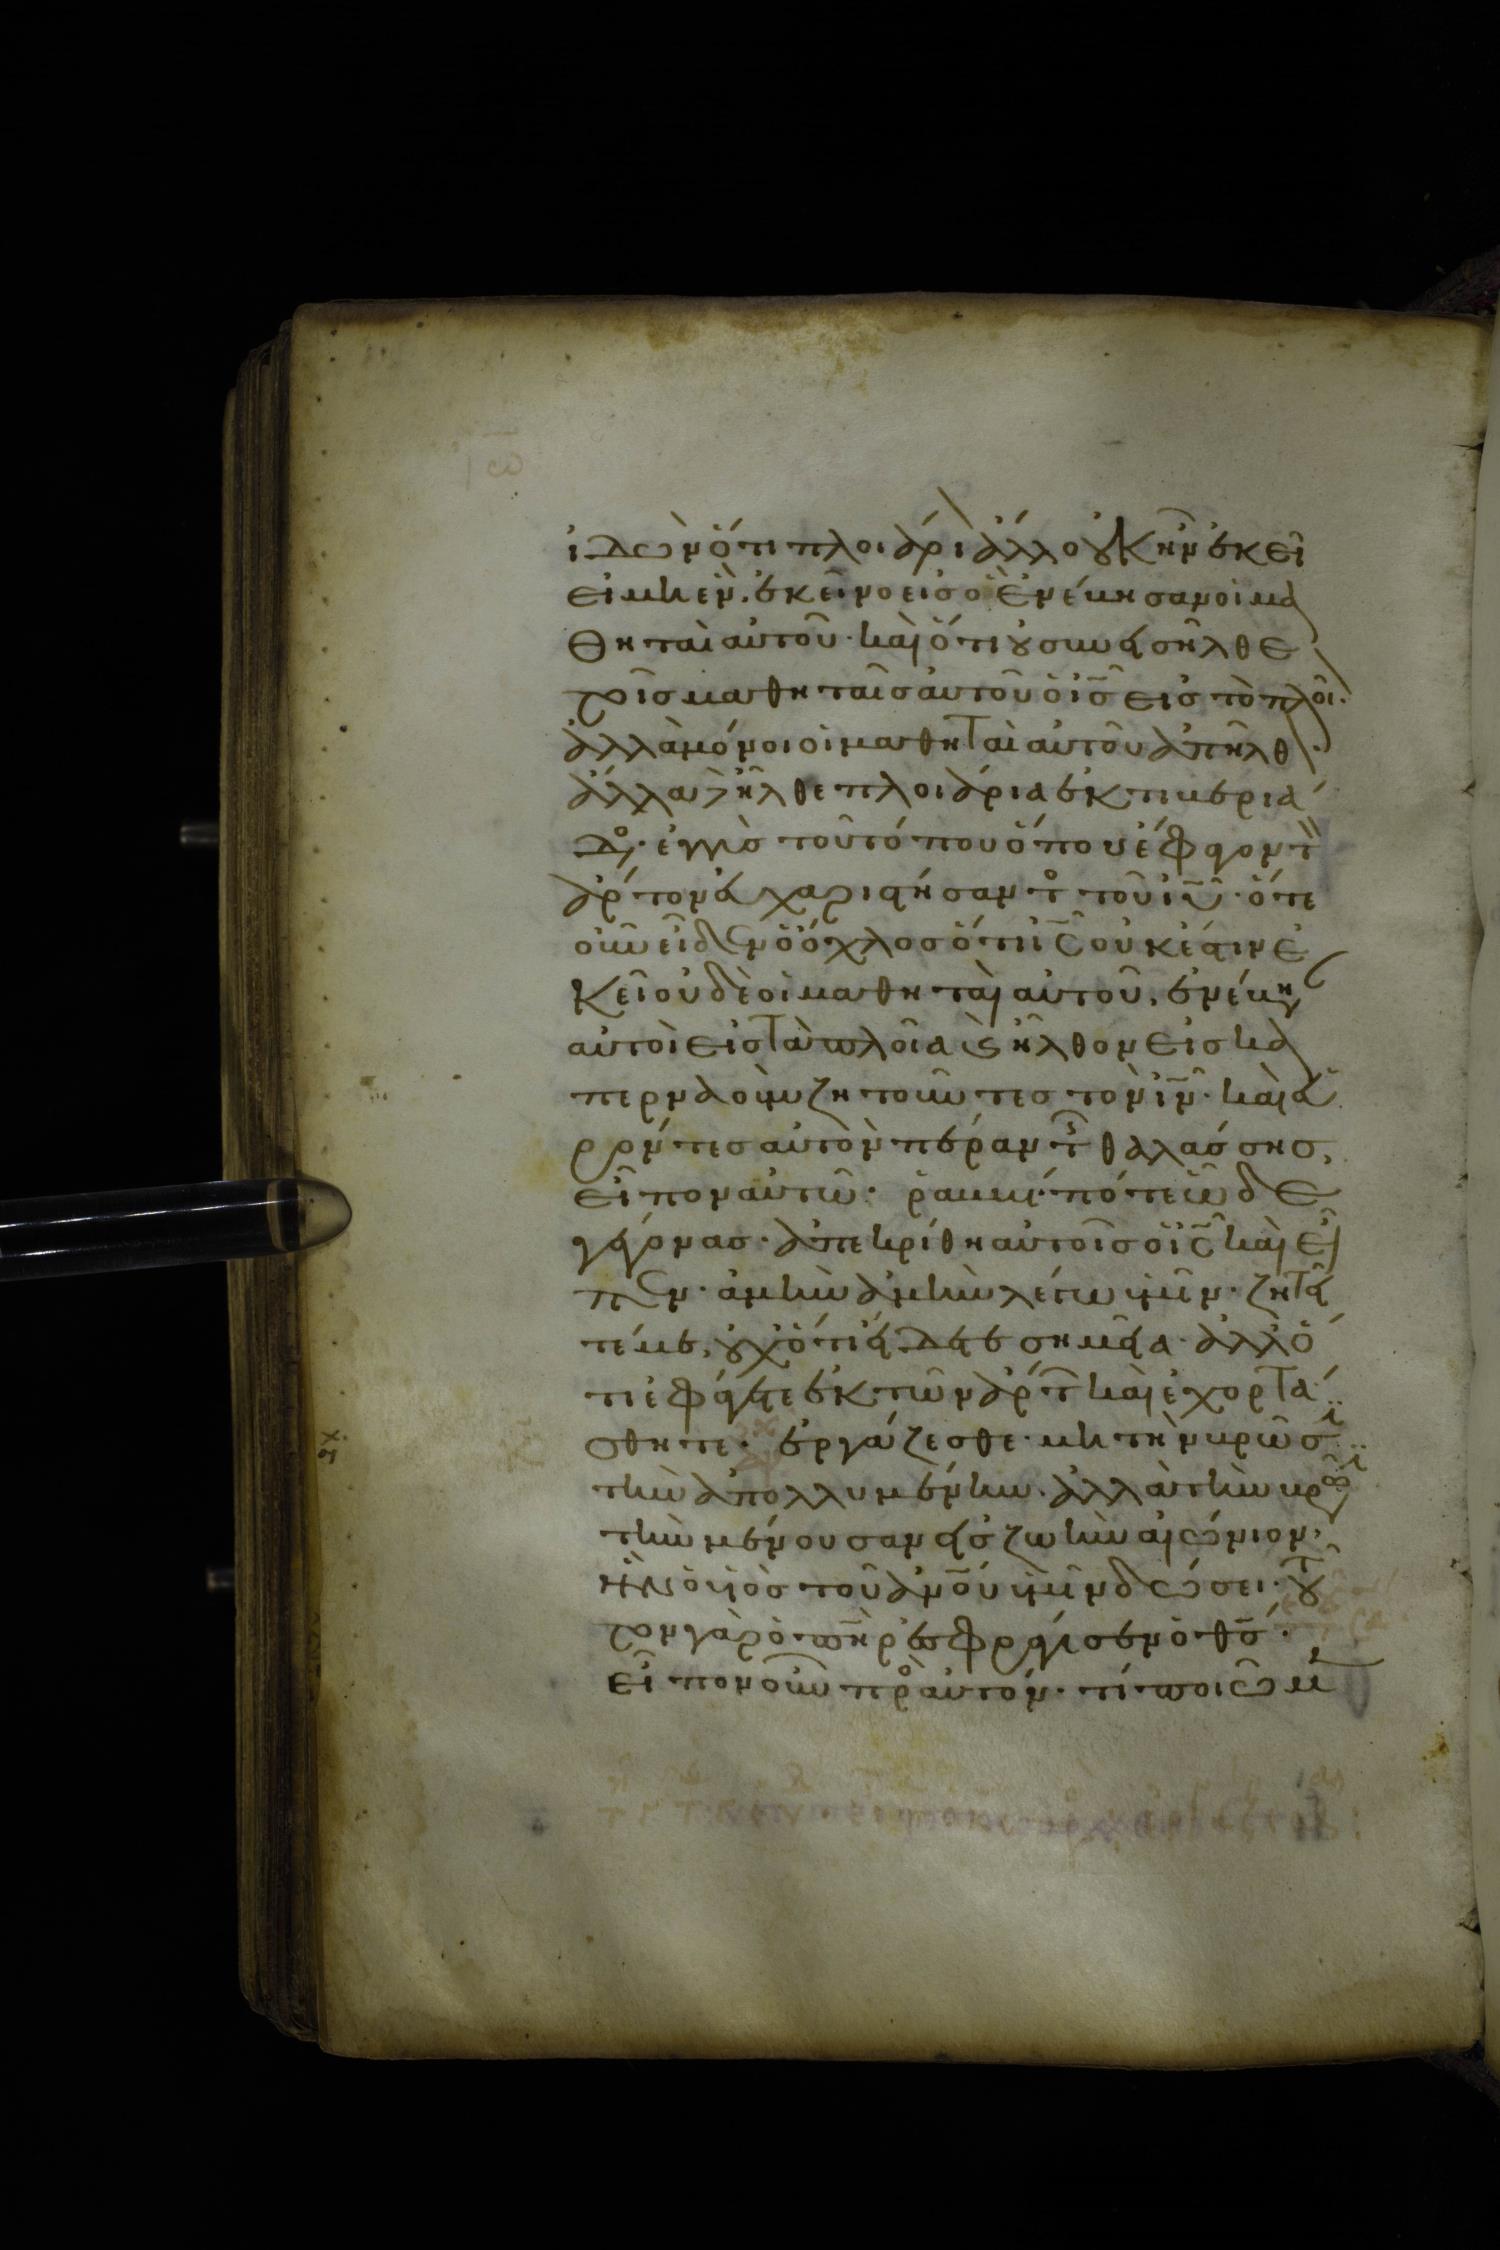 ἰδὼν ὅτι πλοιάριον ἄλλο οὐκ ἦν ἐκεῖ
εἰ μὴ ἓν ἐκεῖνο εἰς ὃ ἐνέβησαν οἱ μα
θηταὶ αὐτοῦ· καὶ ὅτι οὐ συνεισῆλθε
τοῖς μαθηταῖς αὐτοῦ ὁ ις εἰς τὸ πλοῖ·
ἀλλὰ μόνοι οἱ μαθηταὶ αὐτοῦ ἀπῆλθ·
ἄλλα δὲ ἦλθε πλοιάρια ἐκ τιβεριά
δο· ἐγγὺς τοῦ τόπου ὅπου ἔφαγον τ
ἄρτον εὐχαριστήσαντο τοῦ ιυ· ὅτε
οὖν εἶδεν ὁ ὄχλος ὅτι ις οὐκ ἔστιν ἐ
κεῖ οὐδὲ οἱ μαθηταὶ αὐτοῦ, ἐνέβη
αὐτοὶ εἰς τὰ πλοῖα καὶ ἦλθον εἰς κα
περναοὺμ ζητοῦντες τὸν ιν· καὶ εὑ
ρόντες αὐτὸν πέραν τ θαλάσσης,
εἶπον αὐτῶ· ῥαββί· πότε ὧδε
γέγονας· ἀπεκρίθη αὐτοῖς ὁ ις καὶ εἶ
πεν· ἀμὴν ἀμὴν λέγω ὑμῖν· ζητεῖ
τέ με, οὐχ ὅτι εἴδετε σημεῖα· ἀλλ ὅ
τι ἐφάγετε ἐκ τῶν ἄρτ καὶ ἐχορτά
σθητε· ἐργάζεσθε μὴ τὴν βρῶσι
τὴν ἀπολλυμένην. ἀλλὰ τὴν βρῶσι
τὴν μένουσαν εἰς ζωὴν αἰώνιον,
ἣν ὁ υἱὸς τοῦ ανου ὑμῖν δώσει· τοῦ
τον γὰρ ὁ πηρ ἐσφράγισεν ὁ θς·
εἶπον οὖν πρὸ αὐτόν· τί ποιῶμ